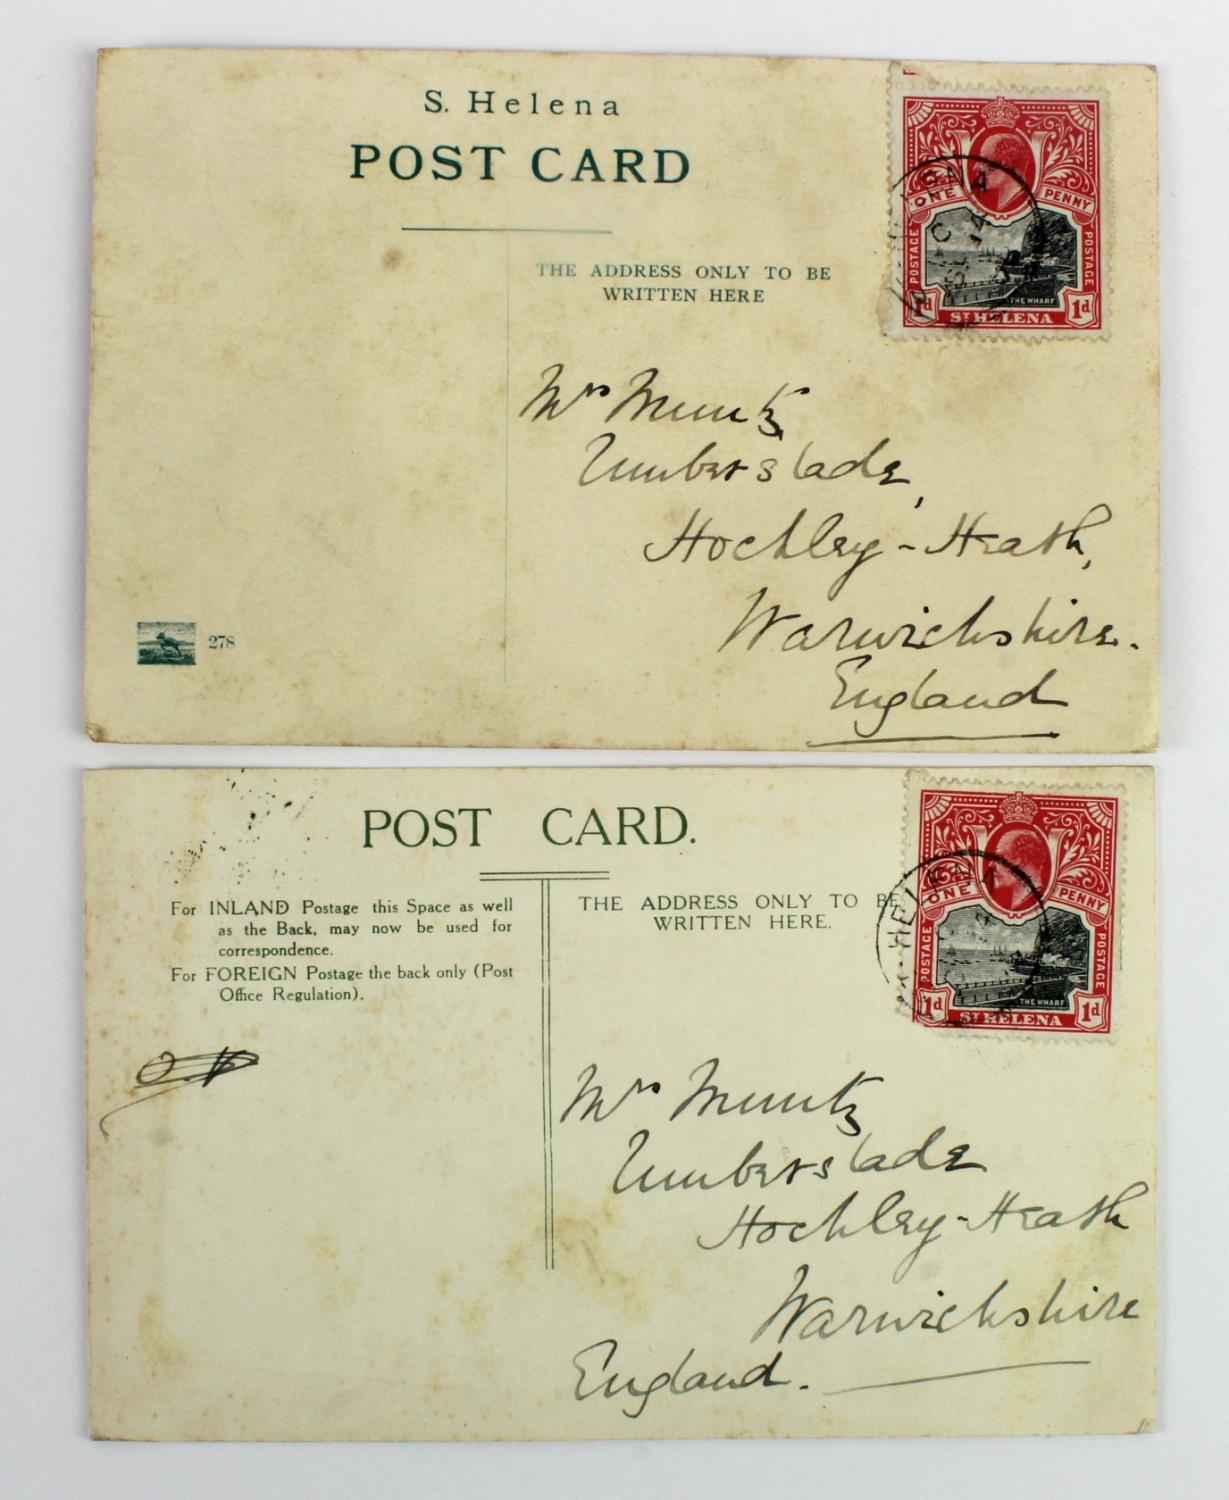 S. Helena
POST CARD
THE ADDRESS ONLY TO BE
WRITTEN HERE
ONE PENNY
POSTAGE POSTAGE
THE WHARF
1d ST HELENA 1d
Mrs Muntz
Umberslade,
Hockley-Heath,
Warwickshire.
England
278
POST CARD.
For INLAND Postage this Space as well
as the Back, may now be used for
correspondence.
For FOREIGN Postage the back only (Post
Office Regulation).
THE ADDRESS ONLY TO BE
WRITTEN HERE.
HELENA
ONE PENNY
POSTAGE POSTAGE
THE WHARF
1d ST HELENA 1d
Mrs Muntz
Umberslade
Hockley-Heath
Warwickshire
England.